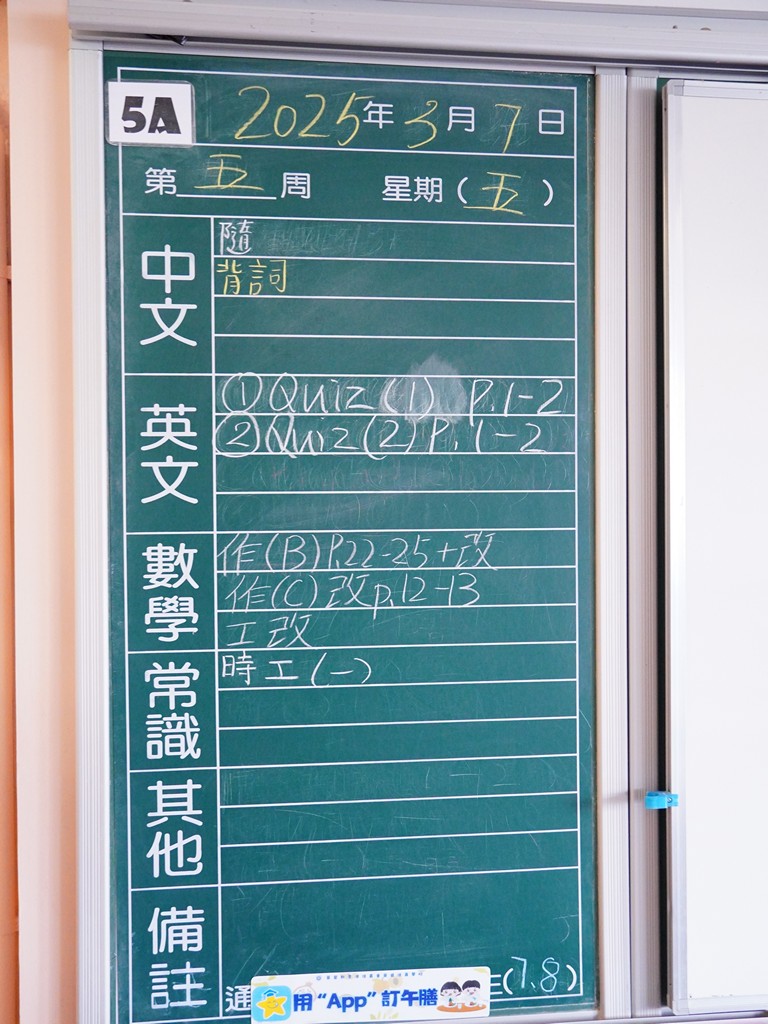 5A
2025年3月7日
第五周 星期(五)
中文
隨
背詞
英文
①Quiz(1) p.1-2
②Quiz(2) P.1-2
數學
作(B)P.22-25+改
作(C)改p.12-13
工改
常識
時工(一)
其他
備註
通
(7.8)
用“App”訂午膳